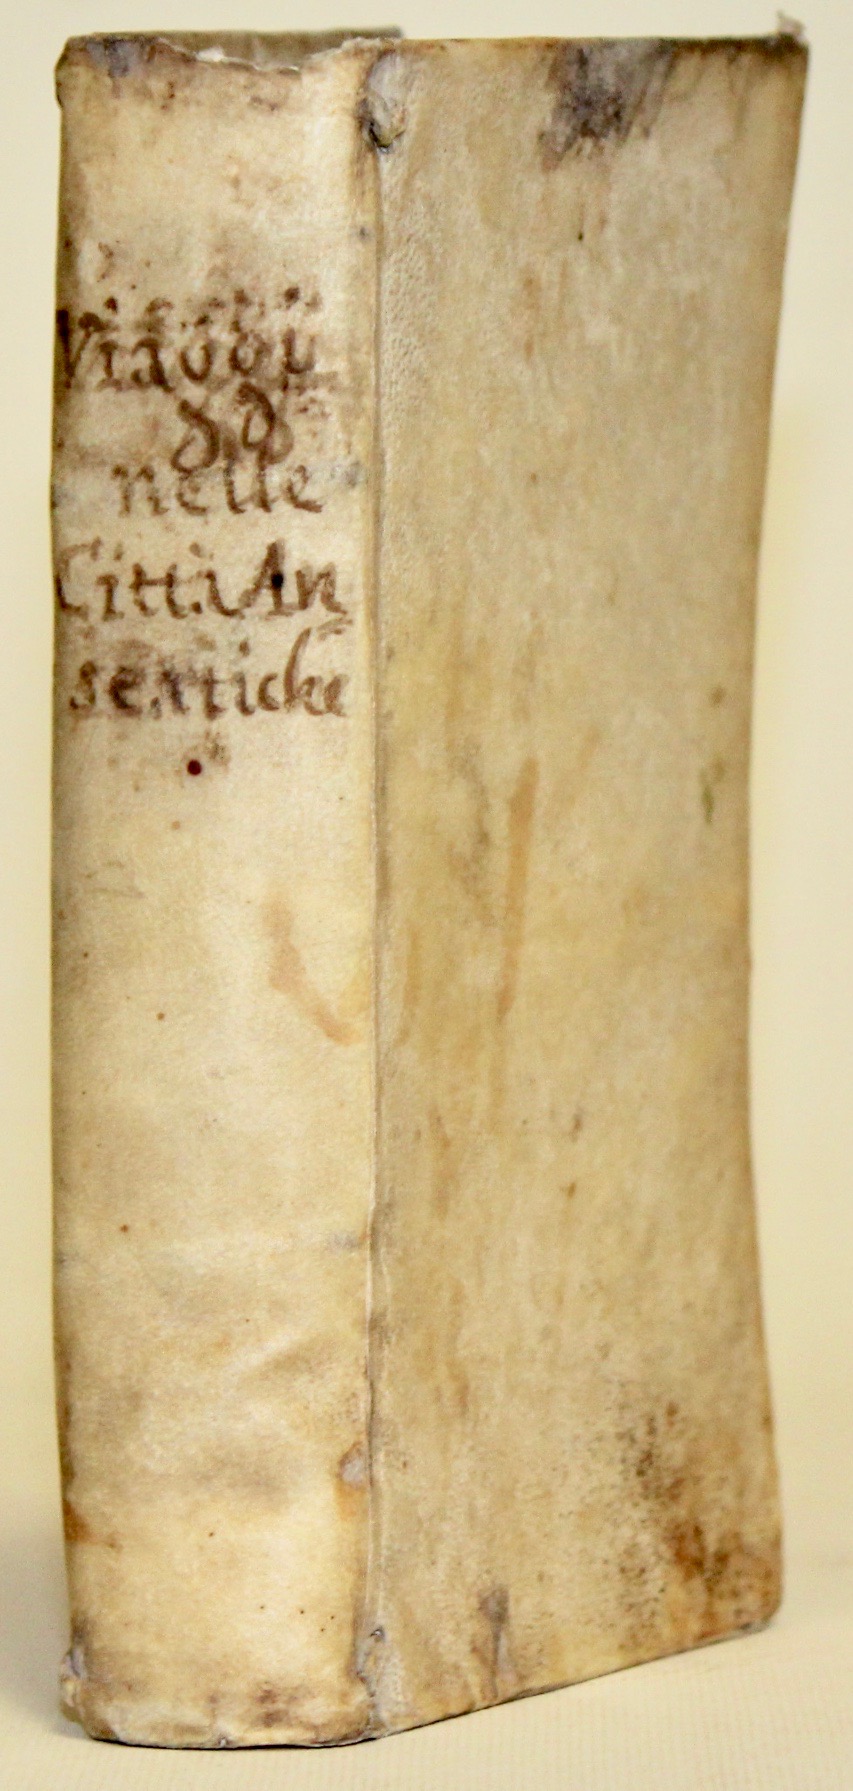 Viaggi
nelle
Città An
seatiche